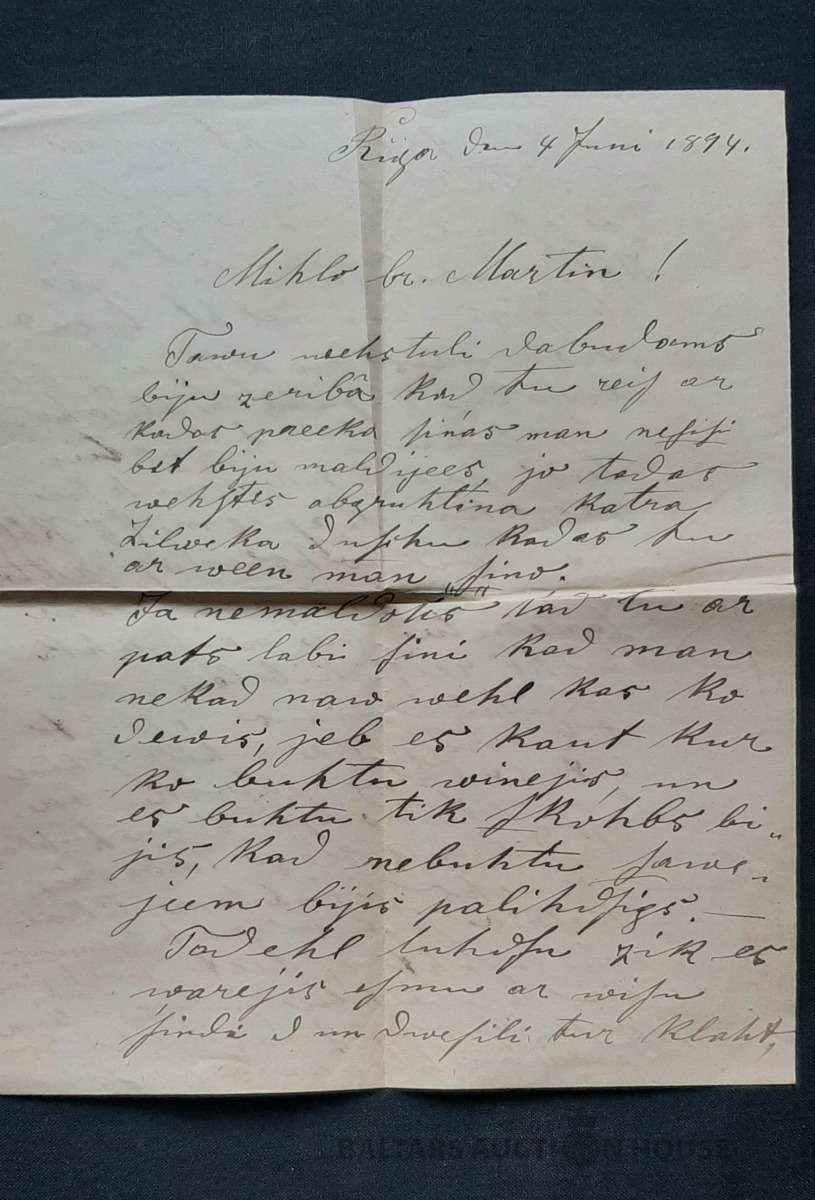 Riga den 4 Juni 1894.
Mihlo br. Martin !
Tawu wehstuli dabudams
biju zeribâ kad tu reiſ ar
kadas preeka ſiņas man neſiſi
bet biju maldijees, jo tadas
wehſtis abgruhtina katra
zilweka duſchu kadas tu
ar ween man ſino.
Ja nemaldotis tad tu ar
pats labi ſini kad man
nekad naw wehl kas ko
dewis, jeb es kaut kur
ko buhtu winejis, un
es buhtu tik ſkohbs bi„
jis, kad nebuhtu ſawe„
jeem bijis palihdſigs. —
Tadehl luhdſu zik es
warejis eſmu ar wiſu
ſirdi un dweſili tur klaht,
BALTARS AUCTION HOUSE